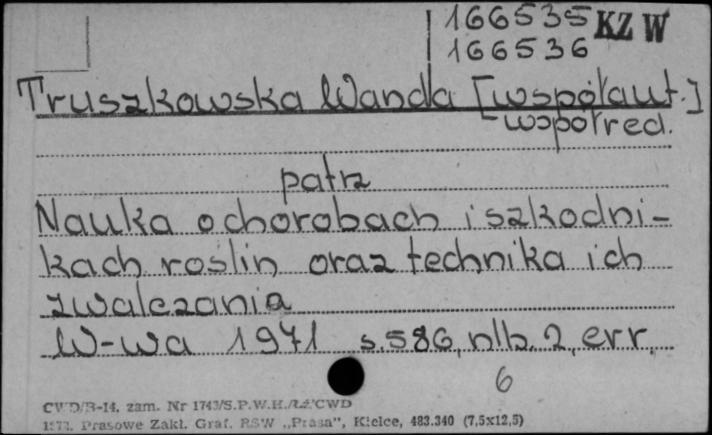 166535 KZ W
166536
Truszkowska Wanda [współaut.]
współred.
patrz
Nauka o chorobach i szkodni-
kach roślin oraz technika ich
zwalczania
W-wa 1971 s. 586, nlb. 2, err.
6
zam. Nr 1743/S.P.W.H./ CWD
Prasowe Zakł. Graf. RSW „Prasa”, Kielce, 483.340 (7,5x12,5)